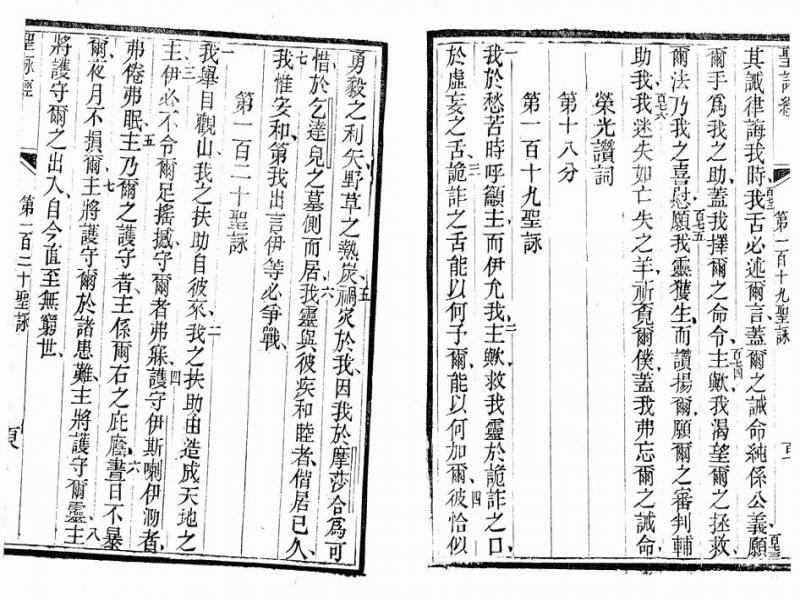 聖詠經
第一百十九聖詠
其誡律誨我時我舌必述爾言蓋爾之誡命純係公義願
爾手爲我之助蓋我擇爾之命令主歟我渴望爾之拯救
爾法乃我之喜慰願我靈獲生而讚揚爾願爾之審判輔
助我我迷失如亡失之羊祈覓爾僕蓋我弗忘爾之誡命
榮光讚詞
第十八分
第一百十九聖詠
我於愁苦時呼籲主而伊允我主歟救我靈於詭詐之口
於虛妄之舌詭詐之舌能以何予爾能以何加爾彼恰似
勇毅之利矢野草之熱炭禍哉於我因我於摩莎合爲可
惜於乞達兒之墓側而居我靈與彼疾和睦者偕居已久
我惟安和第我出言伊等必爭戰
第一百二十聖詠
我舉目觀山我之扶助自彼來我之扶助由造成天地之
主伊必不令爾足搖撼守爾者弗寐護守伊斯喇伊泐者
弗倦弗眠主乃爾之護守者主係爾右之庇廕晝日不暴
爾夜月不損爾主將護守爾於諸患難主將護守爾靈主
將護守爾之出入自今直至無窮世
聖詠經
第一百二十聖詠